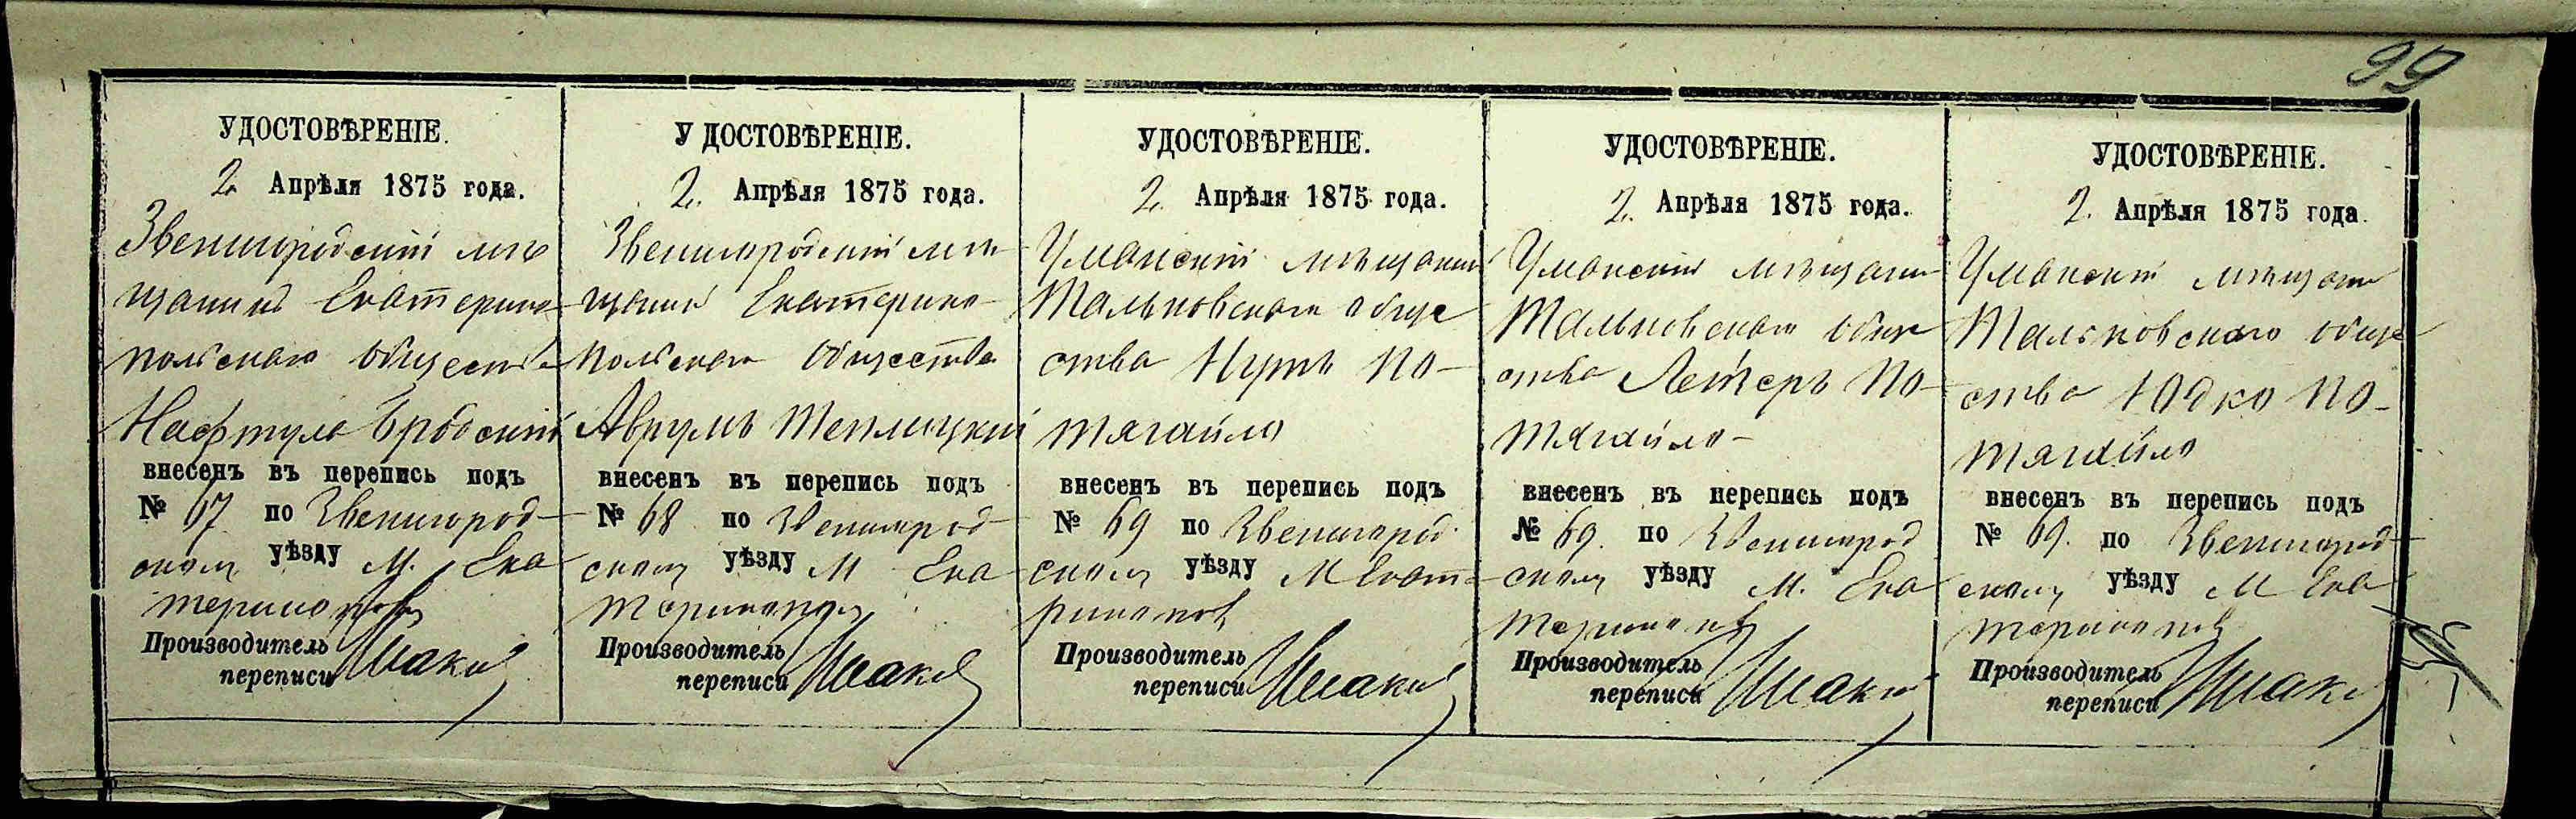 99
УДОСТОВѢРЕНІЕ.
2 Апрѣля 1875 года.
Звенигородскій мѣ
щанинъ Екатерино
польскаго общества
Нафтула Бродскій
внесенъ въ перепись подъ
№ 67 по Звенигород-
скому уѣзду М. Ека
теринополь
Производитель
переписи
У ДОСТОВѢРЕНІЕ.
2. Апрѣля 1875 года.
Звенигородскій мѣ
щанинъ Екатерино-
польскаго общества
Аврумъ Теплицкій
внесенъ въ перепись подъ
№ 68 по Звенигород-
скому уѣзду М Ека
теринополь
Производитель
переписи
УДОСТОВѢРЕНІЕ.
2. Апрѣля 1875 года.
Уманскій мѣщанинъ
Тальновскаго обще
ства По-
тягайло
внесенъ въ перепись подъ
№ 69 по Звенигород
скому уѣзду М Екат
ринопол
Производитель
переписи
УДОСТОВѢРЕНІЕ.
2. Апрѣля 1875 года.
Уманскій мѣщанин
Тальновскаго обще
ства Лейзеръ По-
тягайло-
внесенъ въ перепись подъ
№ 69. по Звенигород
скому уѣзду М. Ека
теринопол
Производитель
переписи
УДОСТОВѢРЕНІЕ.
2. Апрѣля 1875 года.
Уманскій мѣщанин
Тальновскаго обще
ства Юдко По-
тягайло
внесенъ въ перепись подъ
№ 69. по Звенигород-
скому уѣзду М Ека
теринопол
Производитель
переписи